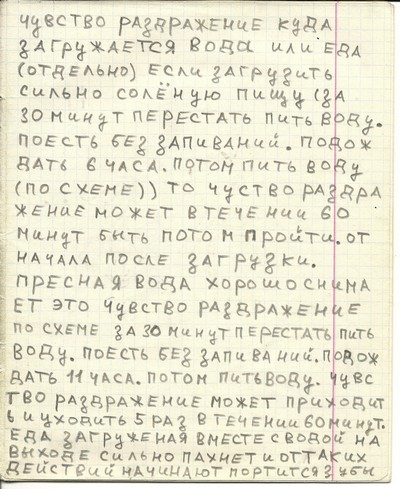 чувство раздражение куда
загружается вода или еда
(отдельно) если загрузить
сильно солёную пищу (за
30 минут перестать пить воду.
поесть без запиваний. подож
дать 6 часа. потом пить воду
(по схеме)) то чуство раздра
жение может в течении 60
минут быть потом пройти. от
начала после загрузки.
пресная вода хорошо снима
ет это чувство раздражение
по схеме за 30 минут перестать пить
воду. поесть без запиваний. подож
дать 11 часа. потом пить воду. чувс
тво раздражение может приходит
ь и уходить 5 раз в течении 60 минут.
еда загруженая вместе с водой на
выходе сильно пахнет и от таких
действий начинают портится зубы